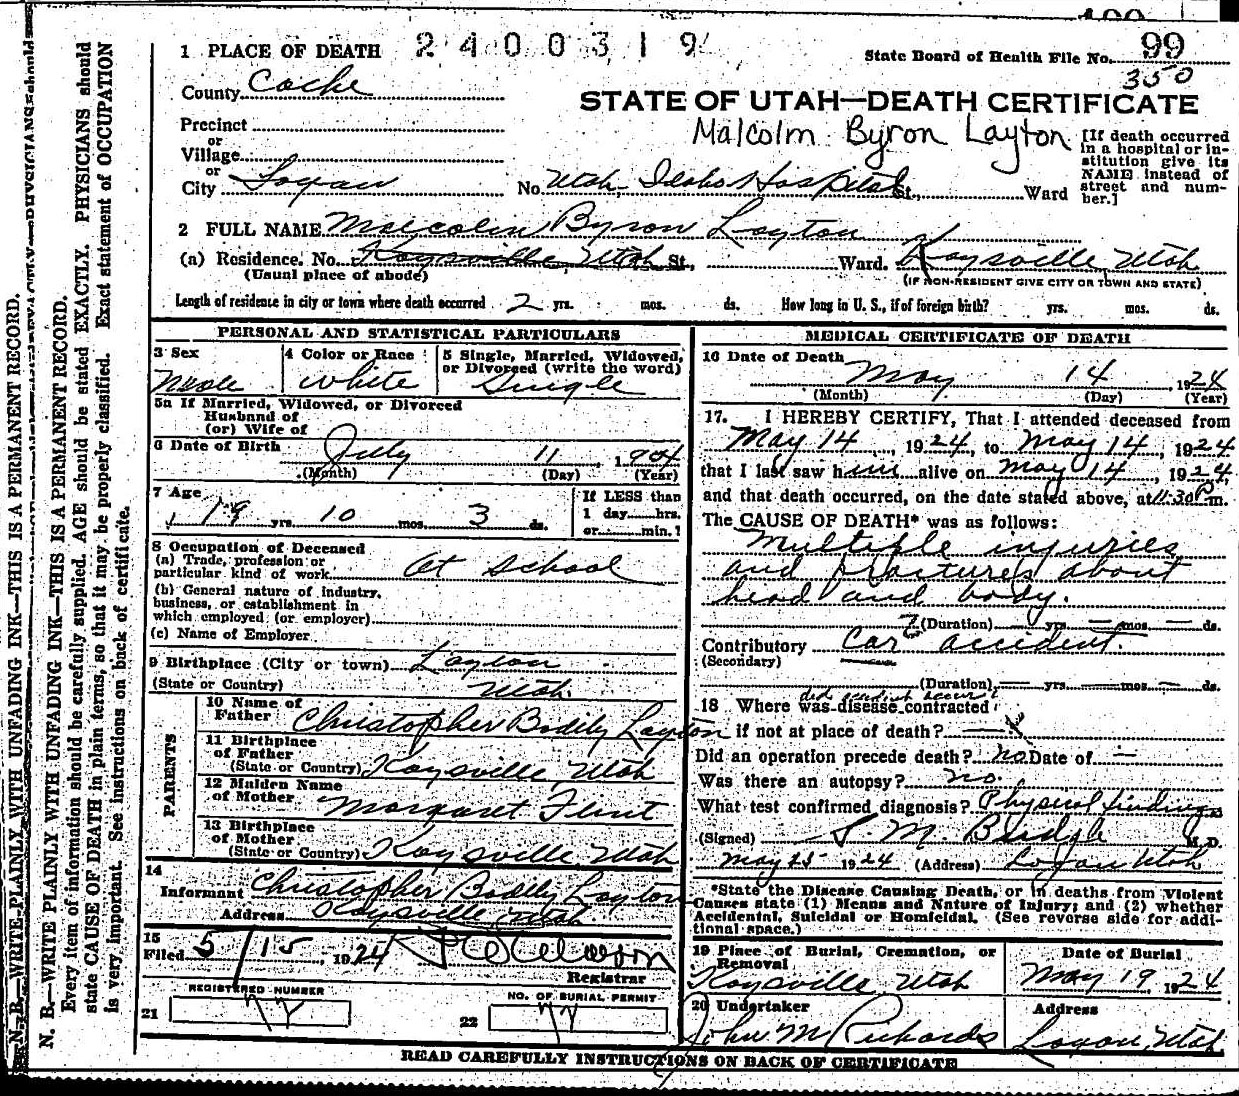 1 PLACE OF DEATH 2400319 State Board of Health File No. 99
350
County Cache
STATE OF UTAH—DEATH CERTIFICATE
Precinct
or
Village
or
City Logan No. Utah-Idaho Hospital St., Ward
Malcolm Byron Layton
[If death occurred
in a hospital or in-
stitution give its
NAME instead of
street and num-
ber.]
2 FULL NAME Malcolm Byron Layton
(a) Residence. No. Kaysville Utah St., Ward. Kaysville, Utah
(Usual place of abode) (IF NON-RESIDENT GIVE CITY OR TOWN AND STATE)
Length of residence in city or town where death occurred 2 yrs. mos. ds. How long in U. S., if of foreign birth? yrs. mos. ds.
PERSONAL AND STATISTICAL PARTICULARS
3 Sex 4 Color or Race 5 Single, Married, Widowed,
or Divorced (write the word)
Male White Single
5a If Married, Widowed, or Divorced
Husband of
(or) Wife of
6 Date of Birth July 11, 1904
(Month) (Day) (Year)
7 Age 19 yrs. 10 mos. 3 ds.
If LESS than
1 day....hrs.
or......min.?
8 Occupation of Deceased
(a) Trade, profession or
particular kind of work At School
(b) General nature of industry,
business, or establishment in
which employed (or employer)
(c) Name of Employer
9 Birthplace (City or town) Layton
(State or Country) Utah
PARENTS
10 Name of
Father Christopher Bodily Layton
11 Birthplace
of Father
(State or Country) Kaysville, Utah
12 Maiden Name
of Mother Margaret Flint
13 Birthplace
of Mother
(State or Country) Kaysville, Utah
14
Informant Christopher Bodily Layton
Address Kaysville Utah
15
Filed 5/15, 1924
Registrar
REGISTERED NUMBER
21 77
NO. OF BURIAL PERMIT
22 77
MEDICAL CERTIFICATE OF DEATH
16 Date of Death
May 14, 1924
(Month) (Day) (Year)
17. I HEREBY CERTIFY, That I attended deceased from
May 14, 1924, to May 14, 1924
that I last saw him alive on May 14, 1924,
and that death occurred, on the date stated above, at 11:30 P m.
The CAUSE OF DEATH* was as follows:
Multiple injuries
and fractures about
head and body.
(Duration) — yrs. — mos. — ds.
Contributory Car accident.
(Secondary)
(Duration) — yrs. — mos. — ds.
did accident occur
18 Where was disease contracted
if not at place of death? — X
Did an operation precede death? no. Date of —
Was there an autopsy? no.
What test confirmed diagnosis? Physical findings
(Signed) M.D.
May 25 1924 (Address) Logan Utah
*State the Disease Causing Death, or in deaths from Violent
Causes state (1) Means and Nature of Injury; and (2) whether
Accidental, Suicidal or Homicidal. (See reverse side for addi-
tional space.)
19 Place of Burial, Cremation, or
Removal Date of Burial
Kaysville, Utah May 19, 1924
20 Undertaker Address
John M Richards Logan, Utah
READ CAREFULLY INSTRUCTIONS ON BACK OF CERTIFICATE
N. B.—WRITE PLAINLY WITH UNFADING INK—THIS IS A PERMANENT RECORD.
N. B.—WRITE PLAINLY WITH UNFADING INK—THIS IS A PERMANENT RECORD.
Every item of information should be carefully supplied. AGE should be stated EXACTLY. PHYSICIANS should
state CAUSE OF DEATH in plain terms, so that it may be properly classified. Exact statement of OCCUPATION
is very important. See instructions on back of certificate.